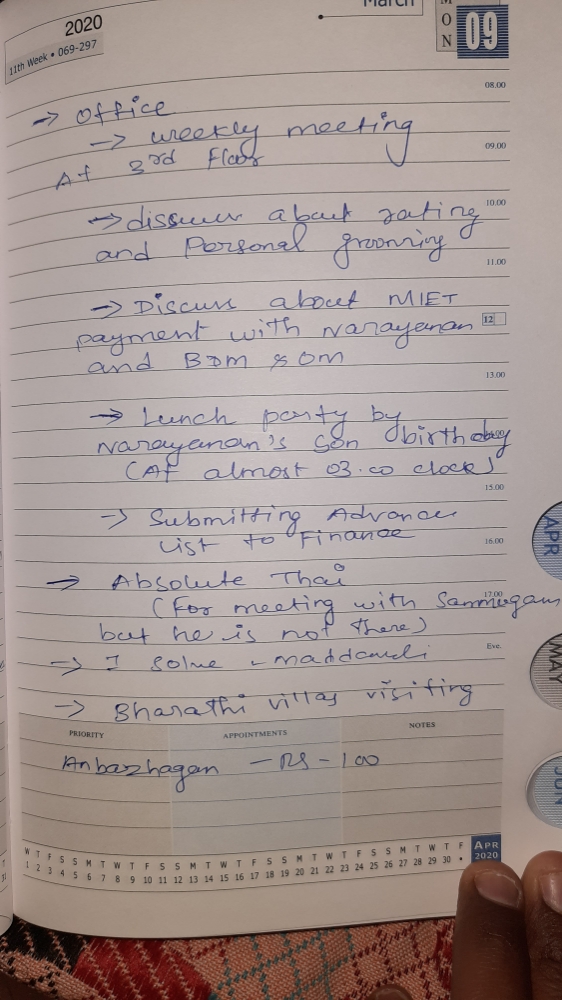 2020
March
MON
09
11th Week • 069-297
08.00
→ office
→ weekly meeting
09.00
At 3rd floor
10.00
→ discuss about rating
and Personal grooming
11.00
→ Discuss about MIET
12
payment with Narayanan
and BDM & OM
13.00
→ Lunch party by
Narayanan's son birthday
(At almost 03.00 clock)
15.00
→ Submitting Advance
List to Finance
16.00
→ Absolute Thai
17.00
(For meeting with Sanmugam
but he is not there)
Eve.
→ I solve
→ Bharathi villas visiting
PRIORITY APPOINTMENTS NOTES
Anbazhagan — RS - 100
W T F S S M T W T F S S M T W T F S S M T W T F S S M T W T F
1 2 3 4 5 6 7 8 9 10 11 12 13 14 15 16 17 18 19 20 21 22 23 24 25 26 27 28 29 30 •
APR
2020
APR
MAY
JUN